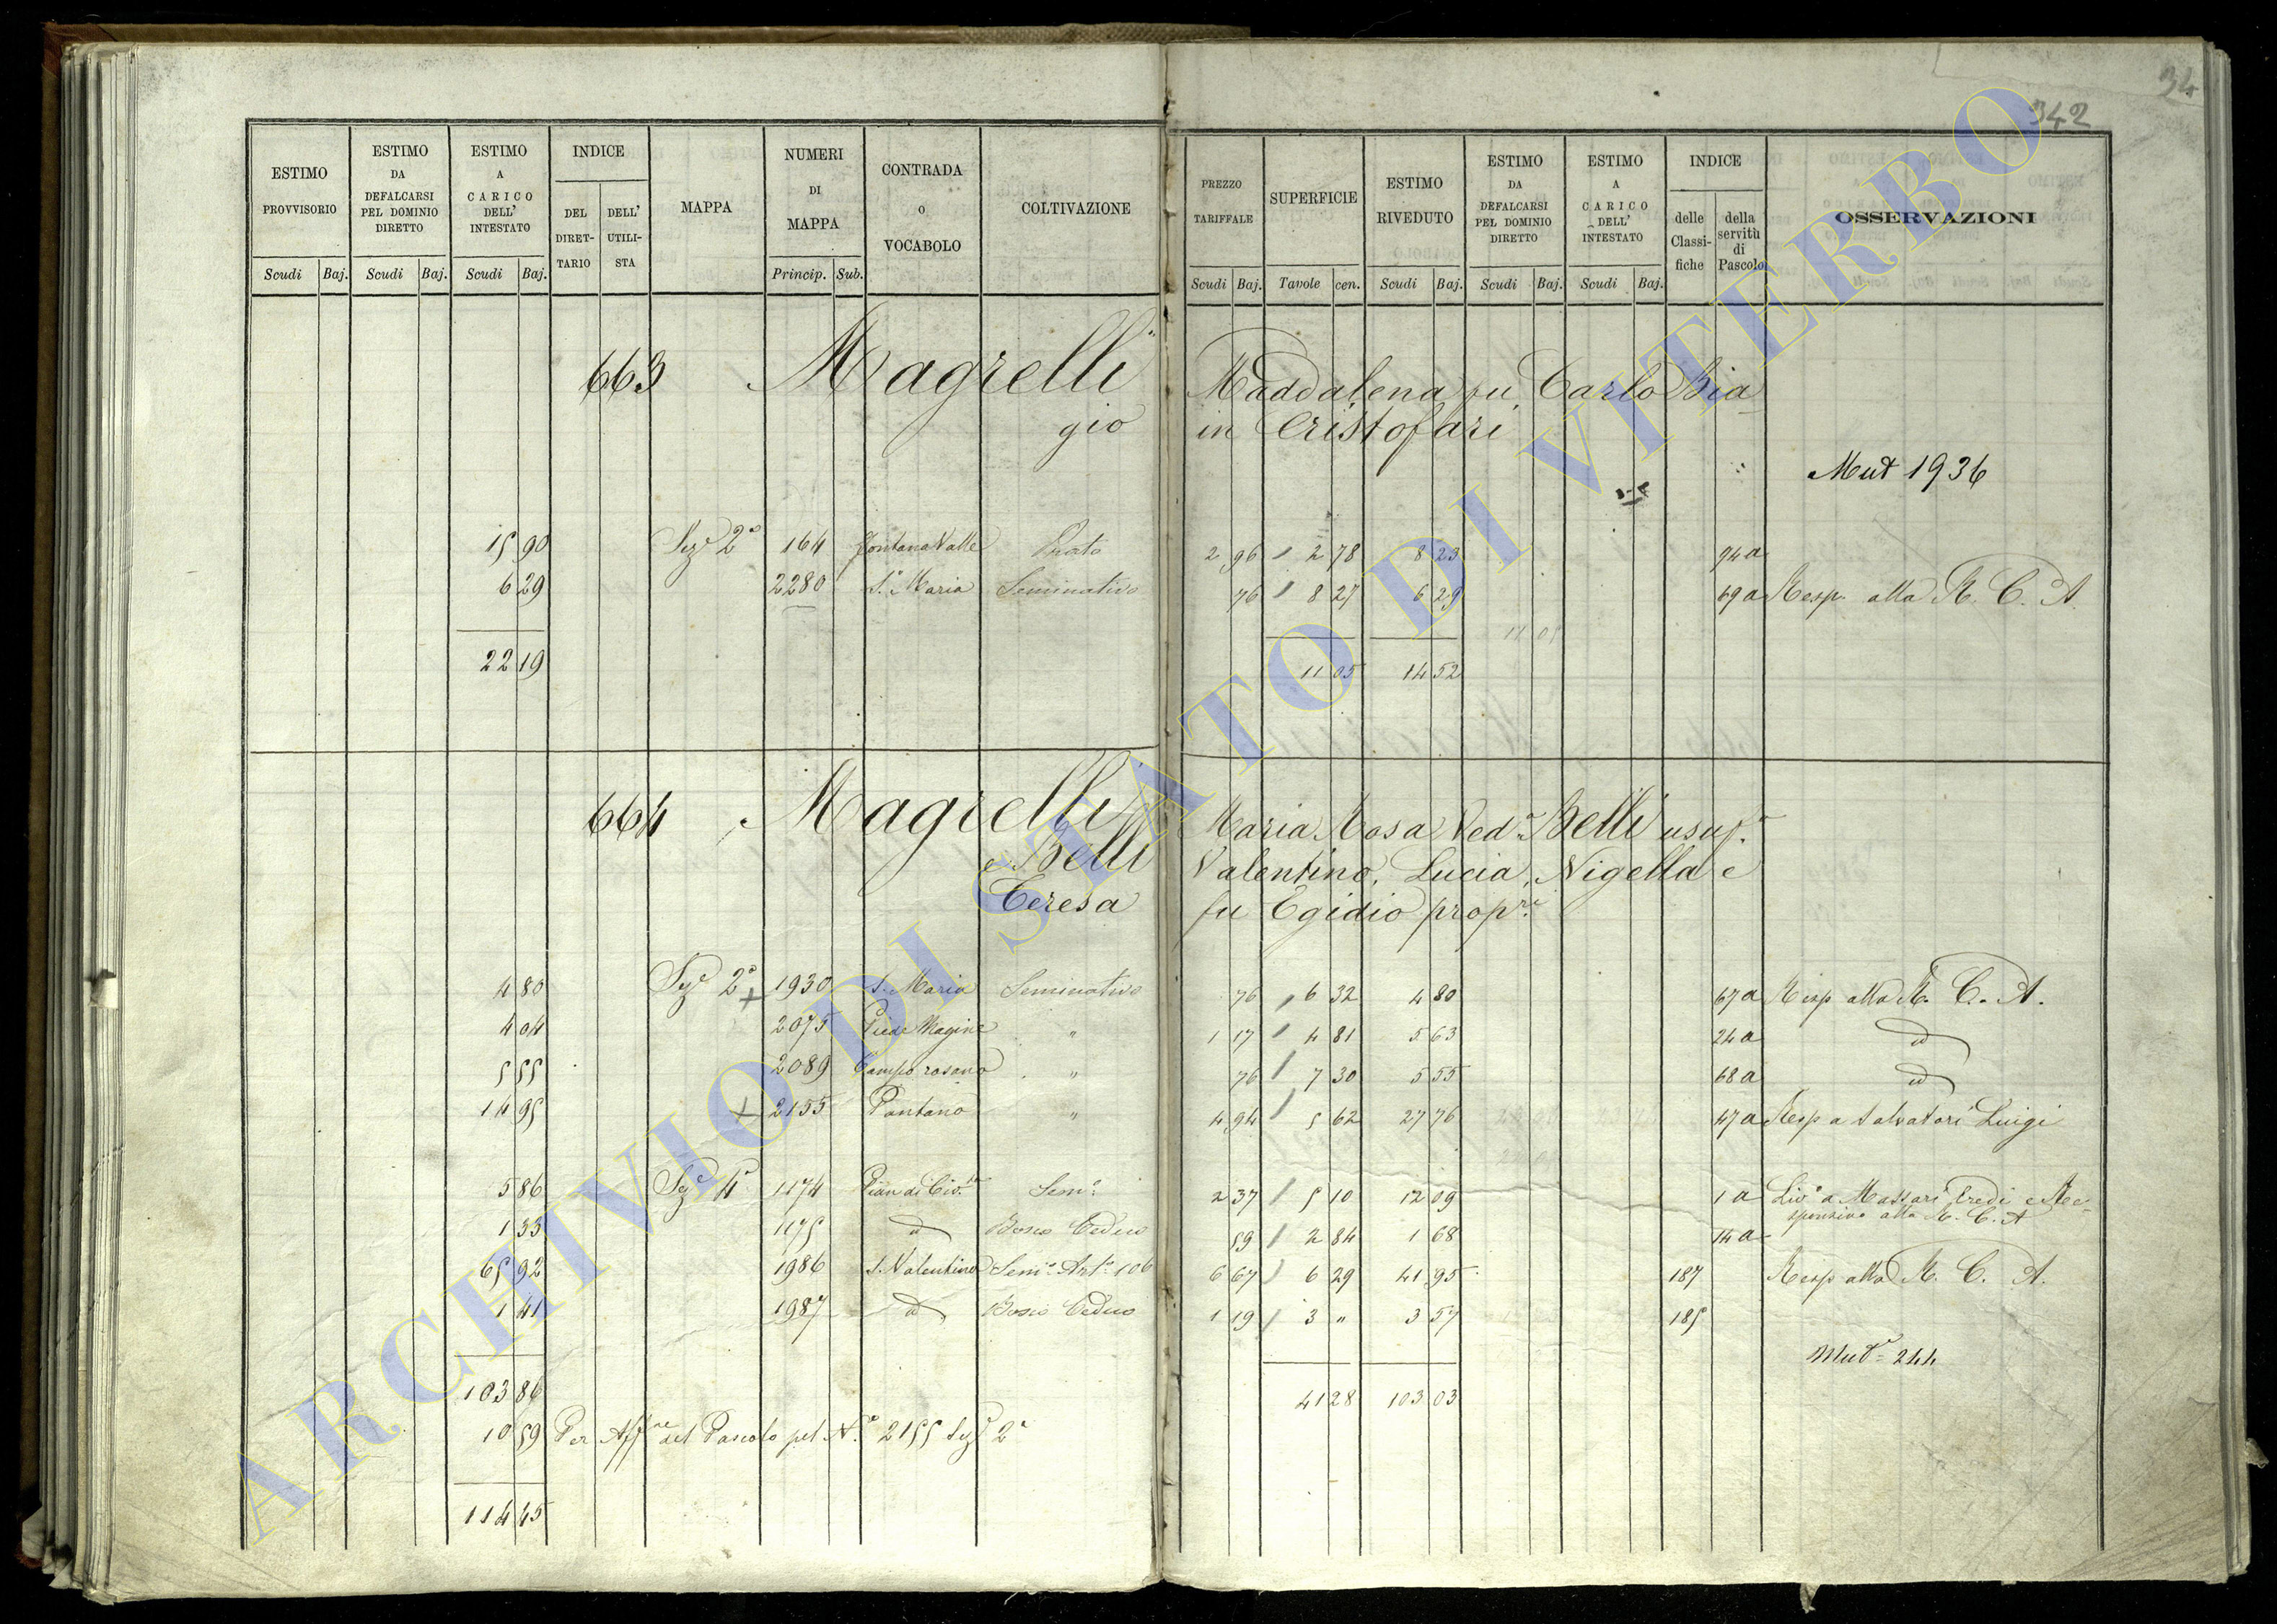 34
342
ESTIMO PROVVISORIO
ESTIMO DA DEFALCARSI PEL DOMINIO DIRETTO
ESTIMO A CARICO DELL' INTESTATO
INDICE
DEL DIRET-TARIO
DELL' UTILI-STA
MAPPA
NUMERI DI MAPPA
CONTRADA O VOCABOLO
COLTIVAZIONE
PREZZO TARIFFALE
SUPERFICIE
ESTIMO RIVEDUTO
ESTIMO DA DEFALCARSI PEL DOMINIO DIRETTO
ESTIMO A CARICO DELL' INTESTATO
INDICE
delle Classi-fiche
della servitù di Pascolo
OSSERVAZIONI
Scudi Baj. Scudi Baj. Scudi Baj. Princip. Sub. Scudi Baj. Tavole cen. Scudi Baj. Scudi Baj. Scudi Baj.
663 Magrelli Maddalena fu Carlo Bia
gio in Cristofari
Mut 1936
15 90 Sez.e 2a 164 Fontana Valle Prato 2 96 2 78 8 23 94 a
6 29 2280 S. Maria Seminativo 76 8 27 6 29 69 a Resp. alla R. C. A.
11 05
22 19 11 05 14 52
664 Magrelli Maria Rosa Ved.a Belli usuf.a
e Belli Valentino, Lucia, Nigella e
Teresa fu Egidio prop.ri
4 80 Sez.e 2a 1930 S. Maria Seminativo 76 6 32 4 80 67 a Resp alla R. C. A.
4 04 2075 Piede Magine " 1 17 4 81 5 63 24 a d
5 55 2089 Camporosano " 76 7 30 5 55 68 a d
14 95 2155 Pantano " 4 94 5 62 27 76 47 a Resp a Salvatori Luigi
5 86 Sez.e 4a 1174 Pian di Civ. Sem.o 2 37 5 10 12 09 1 a Liv.o a Massari Eredi e Re-
sponsivo alla R. C. A
1 33 1175 d Bosco Ceduo 59 2 84 1 68 14 a
65 92 1986 S. Valentino Sem.o Art.o 106 6 67 6 29 41 95 187 Resp alla R. C. A.
1 41 1987 d Bosco Ceduo 1 19 3 " 3 57 185
Mut.e 244
103 86 41 28 103 03
10 59 Per Aff.ne del Pascolo pel N.o 2155 Sez.e 2a
114 45
ARCHIVIO DI STATO DI VITERBO